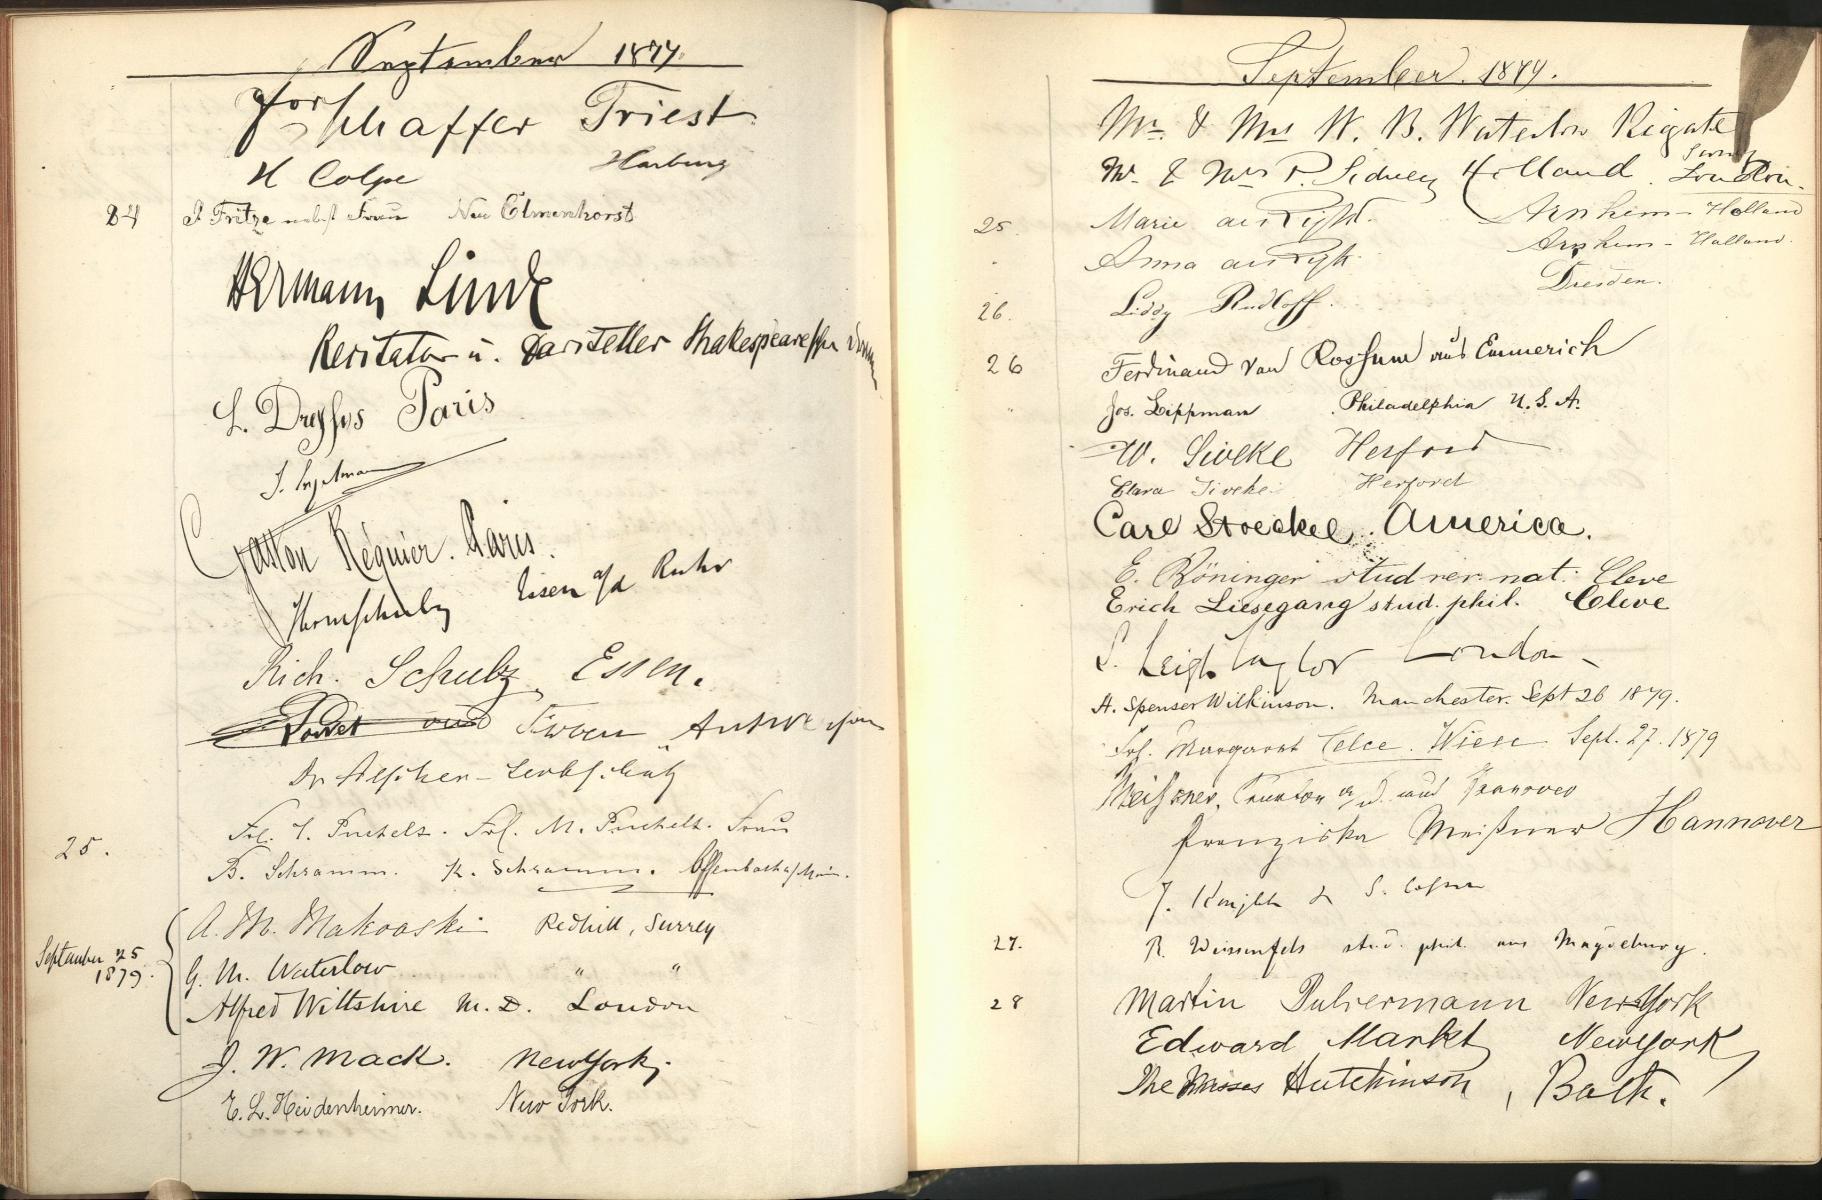 September 1879.
Schaffer Triest
H Colpe Harburg
24 Fritze nebst Frau Neu Elmenhorst
Hermann Linde
Recitator u. Darsteller Shakespeare'scher
L. Dreyfus Paris
Gaston Régnier. Paris.
Hornschulz Essen a/d Ruhr
Rich. Schulz Essen.
und Frau Antwerpen
Dr
25. Frl. Frl. M. Frau
B. Schramm. K. Schramm. Offenbach a/Main.
A. M. Makovski Redhill, Surrey
September 25 1879. G. M. Waterlow " "
Alfred Wiltshire M.D. London
J. W. Mack. New York.
E. L. Heidenheimer. New York.
September 1879.
Mr & Mrs W. B. Waterlow Reigate
Surrey
Mr & Mrs P. Sidney Holland. London.
25. Marie Arnhem - Holland
" Anna Arnhem - Holland.
Dresden.
26. Liddy Rudloff.
26 Ferdinand van Rossum aus Emmerich
" Jos. Lippman Philadelphia U.S.A.
W. Siveke Herford
Clara Siveke Herford
Carl Stoeckel. America.
E. Böninger stud rer. nat. Cleve
Erich Liesegang stud. phil. Cleve
S. Leigh Taylor London
H. Spenser Wilkinson. Manchester. Sept 26 1879.
Frl. Margareth Celce. Wien Sept. 27. 1879
Meißner, und Hannover
Franziska Meißner Hannover
J. & S.
27. R. Weissenfels stud. phil. aus Magdeburg.
28 Martin Pulvermann New York
Edward Markt New York
The Misses Hutchinson, Bath.